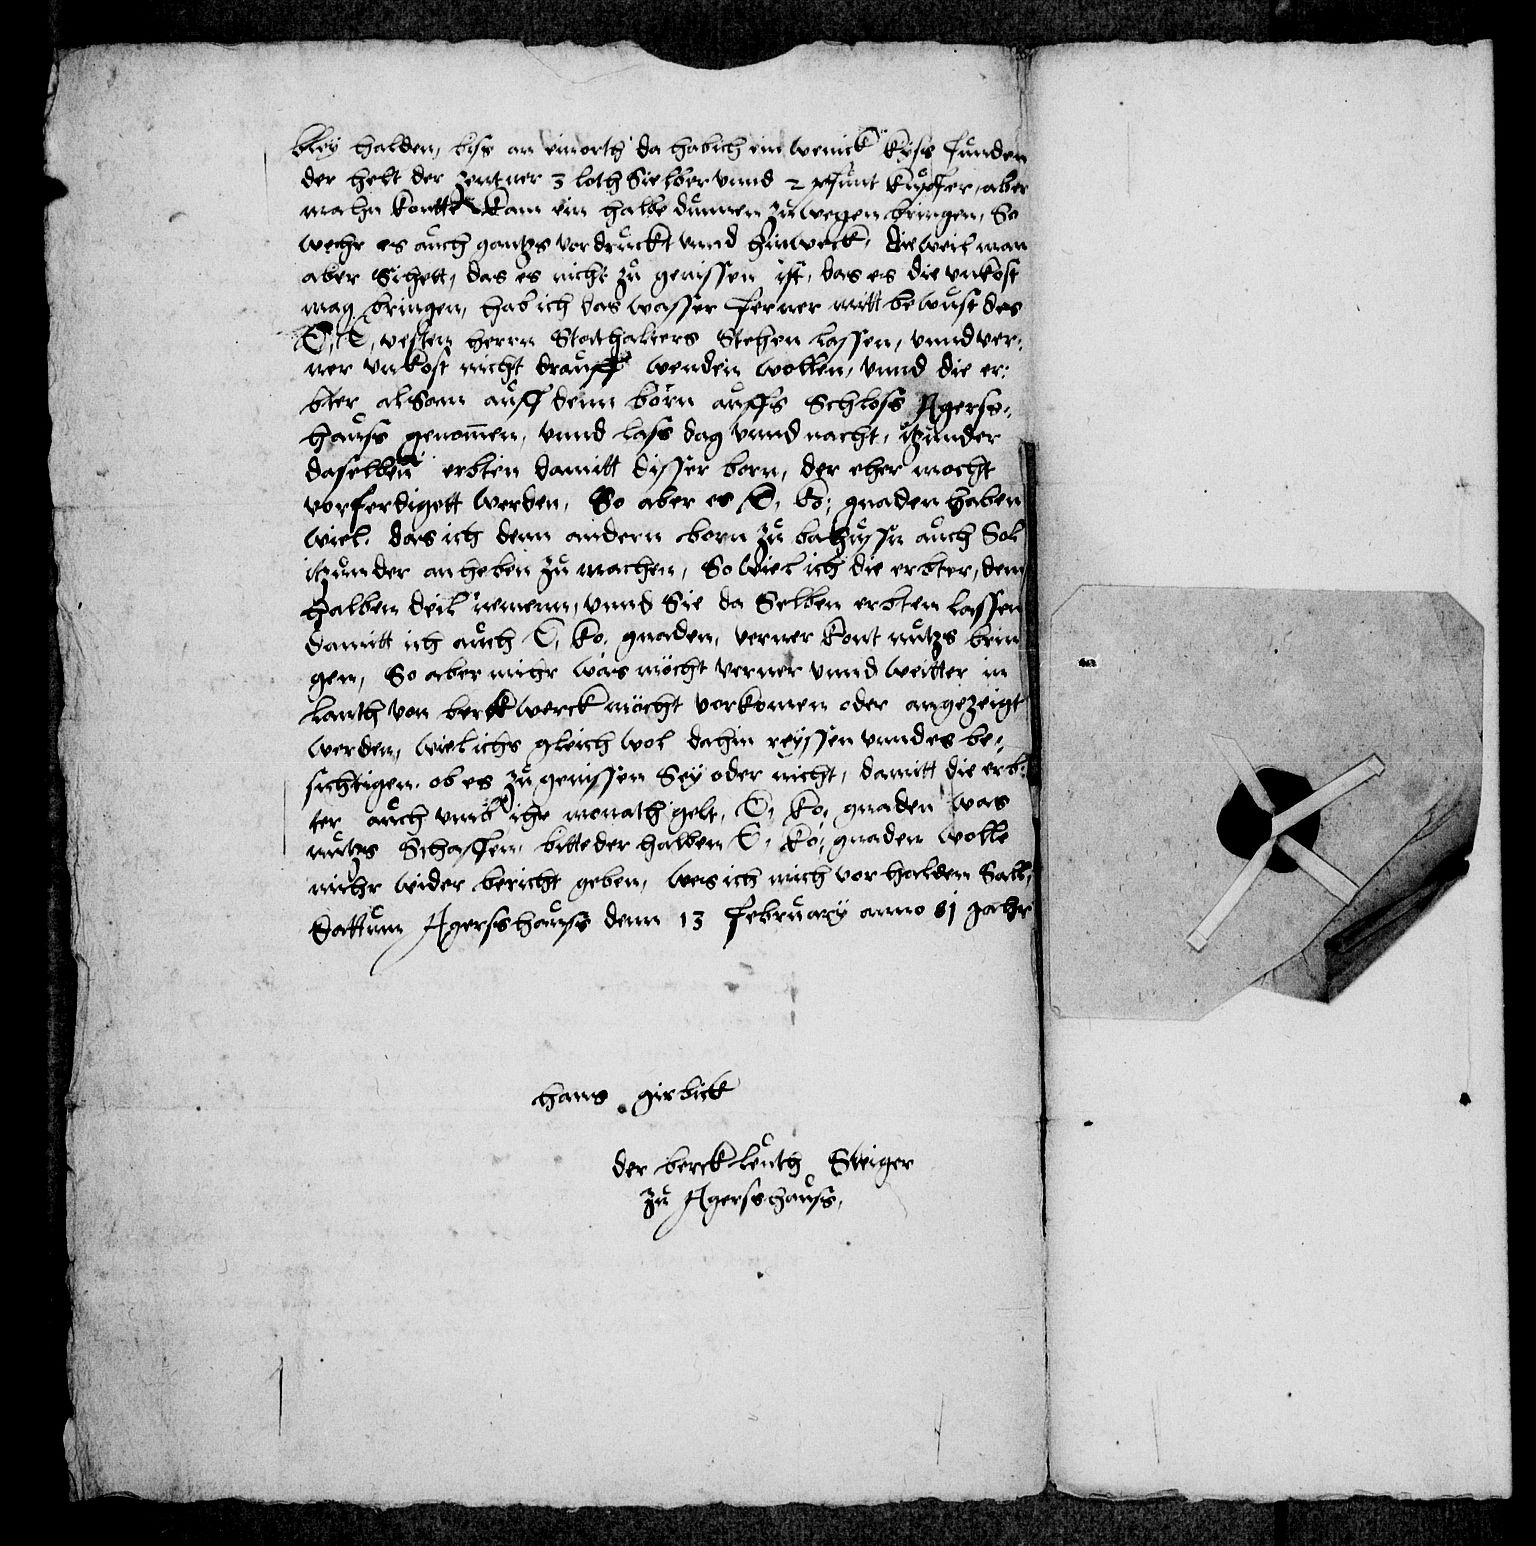 bley halden, biss an einorth da hab ich ein wenick kyss funden
der helt der zentner 3 loth Sielber vnnd 2 pfunt kupfer, aber
mahn kontte kam ein halbe dunnen zu wegen bringen, So
wehr es auch gantzs vordruckt vnnd hinweck, die weil man
aber Sichett, das es nicht zu genissen ist, das es die vnkost
mag bringen, hab ich das wasser ferner mitt bewust des
E, E, vesten herrn Stathalters Stehen lassen, vnnd ver,
ner vnkost nicht drauff wenden wollen, vnnd die er:
bter alsam auff denn born auffs Schloss Agerss,
hauss genomen, vnnd lass dag vnnd nacht, itzunder
daselben erbten damitt disser born, der eher mocht
vorferdigett werden, So aber es E, ko, gnaden haben
wiel. das ich denn andern born zu bahussn auch Sol
itzunder anheben zu machen, So wiel ich die erbter, dem
halben deil nemenn, vnnd Sie da Selben erbten lassen
damitt ich auch E, ko, gnaden, verner kont nutzs brin
gen, So aber mihr was möcht verner vnnd weitter in
lanth von berckwerck möcht vorkomen oder angezeigt
werden, wiel ichs gleich wol dahin reyssen vnnd es be,
sichtigen. ob es zu genissen Sey oder nicht, damitt die erb:
ter auch vmb ihr monath gelt, E, ko, gnaden was
nutzs Schaffen, bitte der halben E, ko, gnaden wolle
mihr wider bericht geben, wes ich mich vorhalden Sall,
Dattum Agersshauss denn 13 february anno 81 Jahr
hans girbick
der berckleuth Steiger
zu Agersshauss,